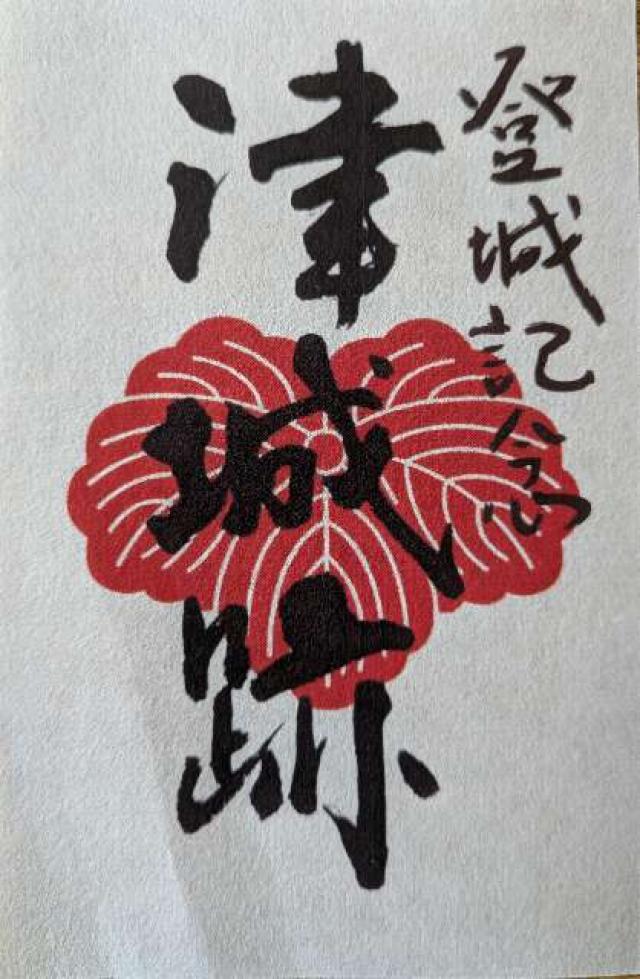 登城記念
津城跡